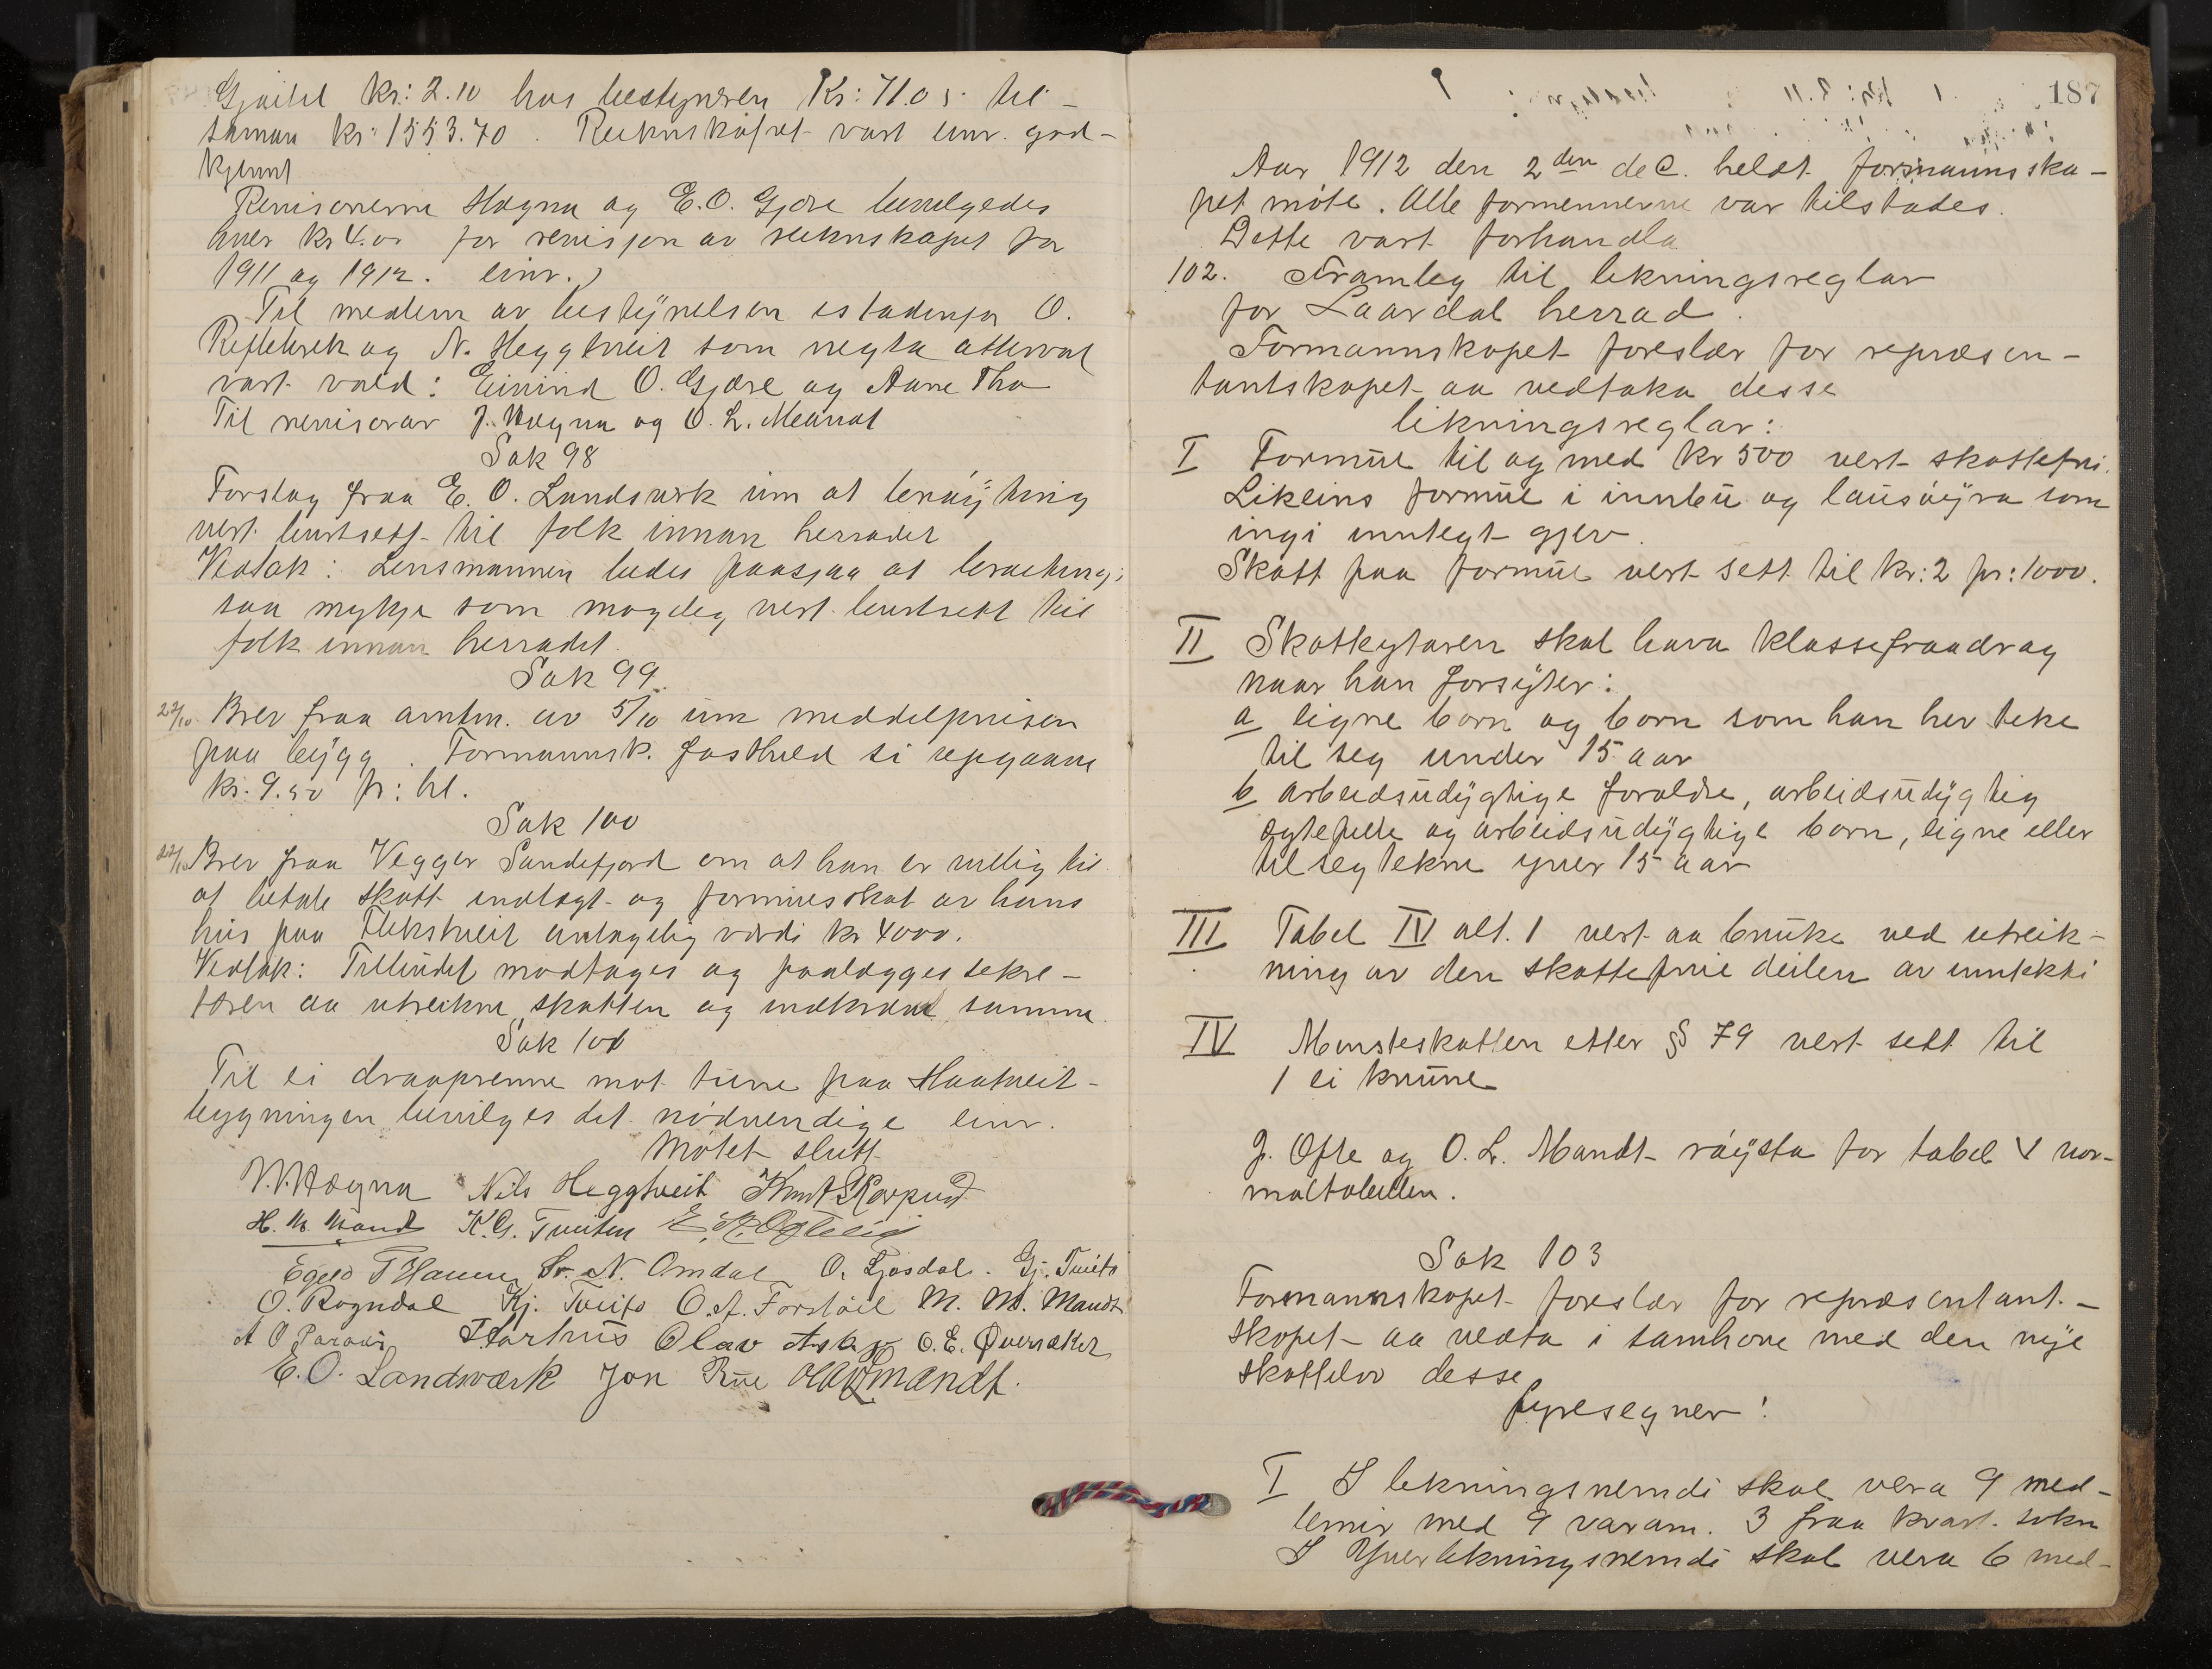 Gjeitel kr: 2.10 hos bestyreren Kr: 71.05 til-
saman kr: 1553.70. Rekneskapet vart einr. god-
kjent
Revisorerne Høgna og E. O. Gjøre bevilgedes
hver kr 4.00 for revisjon av rekneskapet for
1911 og 1912. einr.)
Til medlem av bestyrelsen istadenfor O.
og N. Heggtveit som negta atterval
vart vald: Eivind O. Gjøre og Aane Tho
Til revisorar J. Høgna og O. L. Mandt
Sak 98
Forslag fraa E. O. Landsverk um at brøyting
vert burtsett til folk innan herradet
Vedtak: Lensmannen bedes paasjaa at brøyting
saa mykje som mogeleg vert burtsett til
folk innan herradet.
Sak 99.
22/10. Brev fraa amtm. av 5/10 um meddelprisen
paa bygg. Formannsk. fastheld si uppgaave
kr. 9.50 pr: hl.
Sak 100
22/10 Brev fraa Vegger Sandefjord om at han er villig til
at betale skatt indtægt- og formueskat av hans
hus paa Flekstveit antagelig værdi kr 4000.
Vedtak: Tilbudet modtages og paalægges sekre-
tæren aa utreikne skatten og indkræve samme.
Sak 101
Til ei draaprenne mot tune paa Haatveit-
bygningen bevilges det nødvendige einr.
Møtet slutt
V. Høgna Nils Heggtveit Knut Skarprud
H. M. Mandt K. G. Tveiten
Sv. N. Omdal O. Fjøsdal. Gj. Tveito
O. Rogndal Kj. Tveito O. A. Forstøil M. M. Mandt
A O Olav Aske O. E. Øversaker
E. O. Landsværk Jon Rue Olav L Mandt.
187
Aar 1912 den 2den dec. heldt formannska-
pet møte. Alle formennerne var tilstades.
Dette vart forhandla
102. Framlegg til likningsreglar
for Laardal herrad.
Formannskapet foreslær for repræsen-
tantskapet aa vedtaka desse
likningsreglar:
I Formue til og med kr 500 vert skattefri.
Likeins formue i innbu og lausøyra som
ingi inntegt gjev.
Skatt paa formue vert sett til kr: 2 pr: 1000.
II Skatteytaren skal hava klassefraadrag
naar han forsyter:
a eigne born og born som han hev teke
til seg under 15 aar
b arbeidsudygtige foreldre, arbeidsudygtig
egtefelle og arbeidsudygtige born, eigne eller
til seg tekne yver 15 aar
III Tabel IV alt. 1 vert aa bruke ved utreik-
ning av den skattefrie deilen av inntekti
IV Minsteskatten etter § 79 vert sett til
1 ei krune
J. Ofte og O. L. Mandt røysta for tabel V nor-
maltabellen.
Sak 103
Formannskapet foreslær for repræsentant-
skapet aa vedta i samhøve med den nye
skattelov desse
fyresegner:
I I likningsnemndi skal vera 9 med-
lemir med 9 varam. 3 fraa kvart sokn
I Yverlikningsnemndi skal vera 6 med-